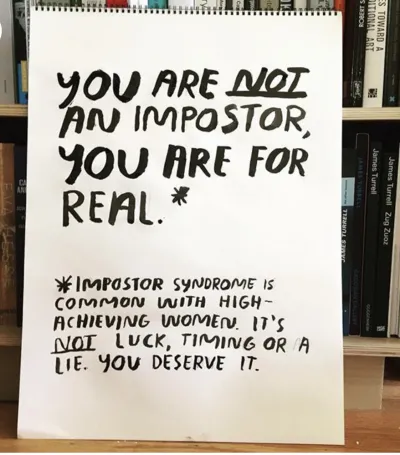 YOU ARE NOT
AN IMPOSTOR,
YOU ARE FOR
REAL.*
*IMPOSTOR SYNDROME IS
COMMON WITH HIGH-
ACHIEVING WOMEN. IT'S
NOT LUCK, TIMING OR A
LIE. YOU DESERVE IT.
JAMES TURRELL
James Turrell
James Turrell Zug Zuoz